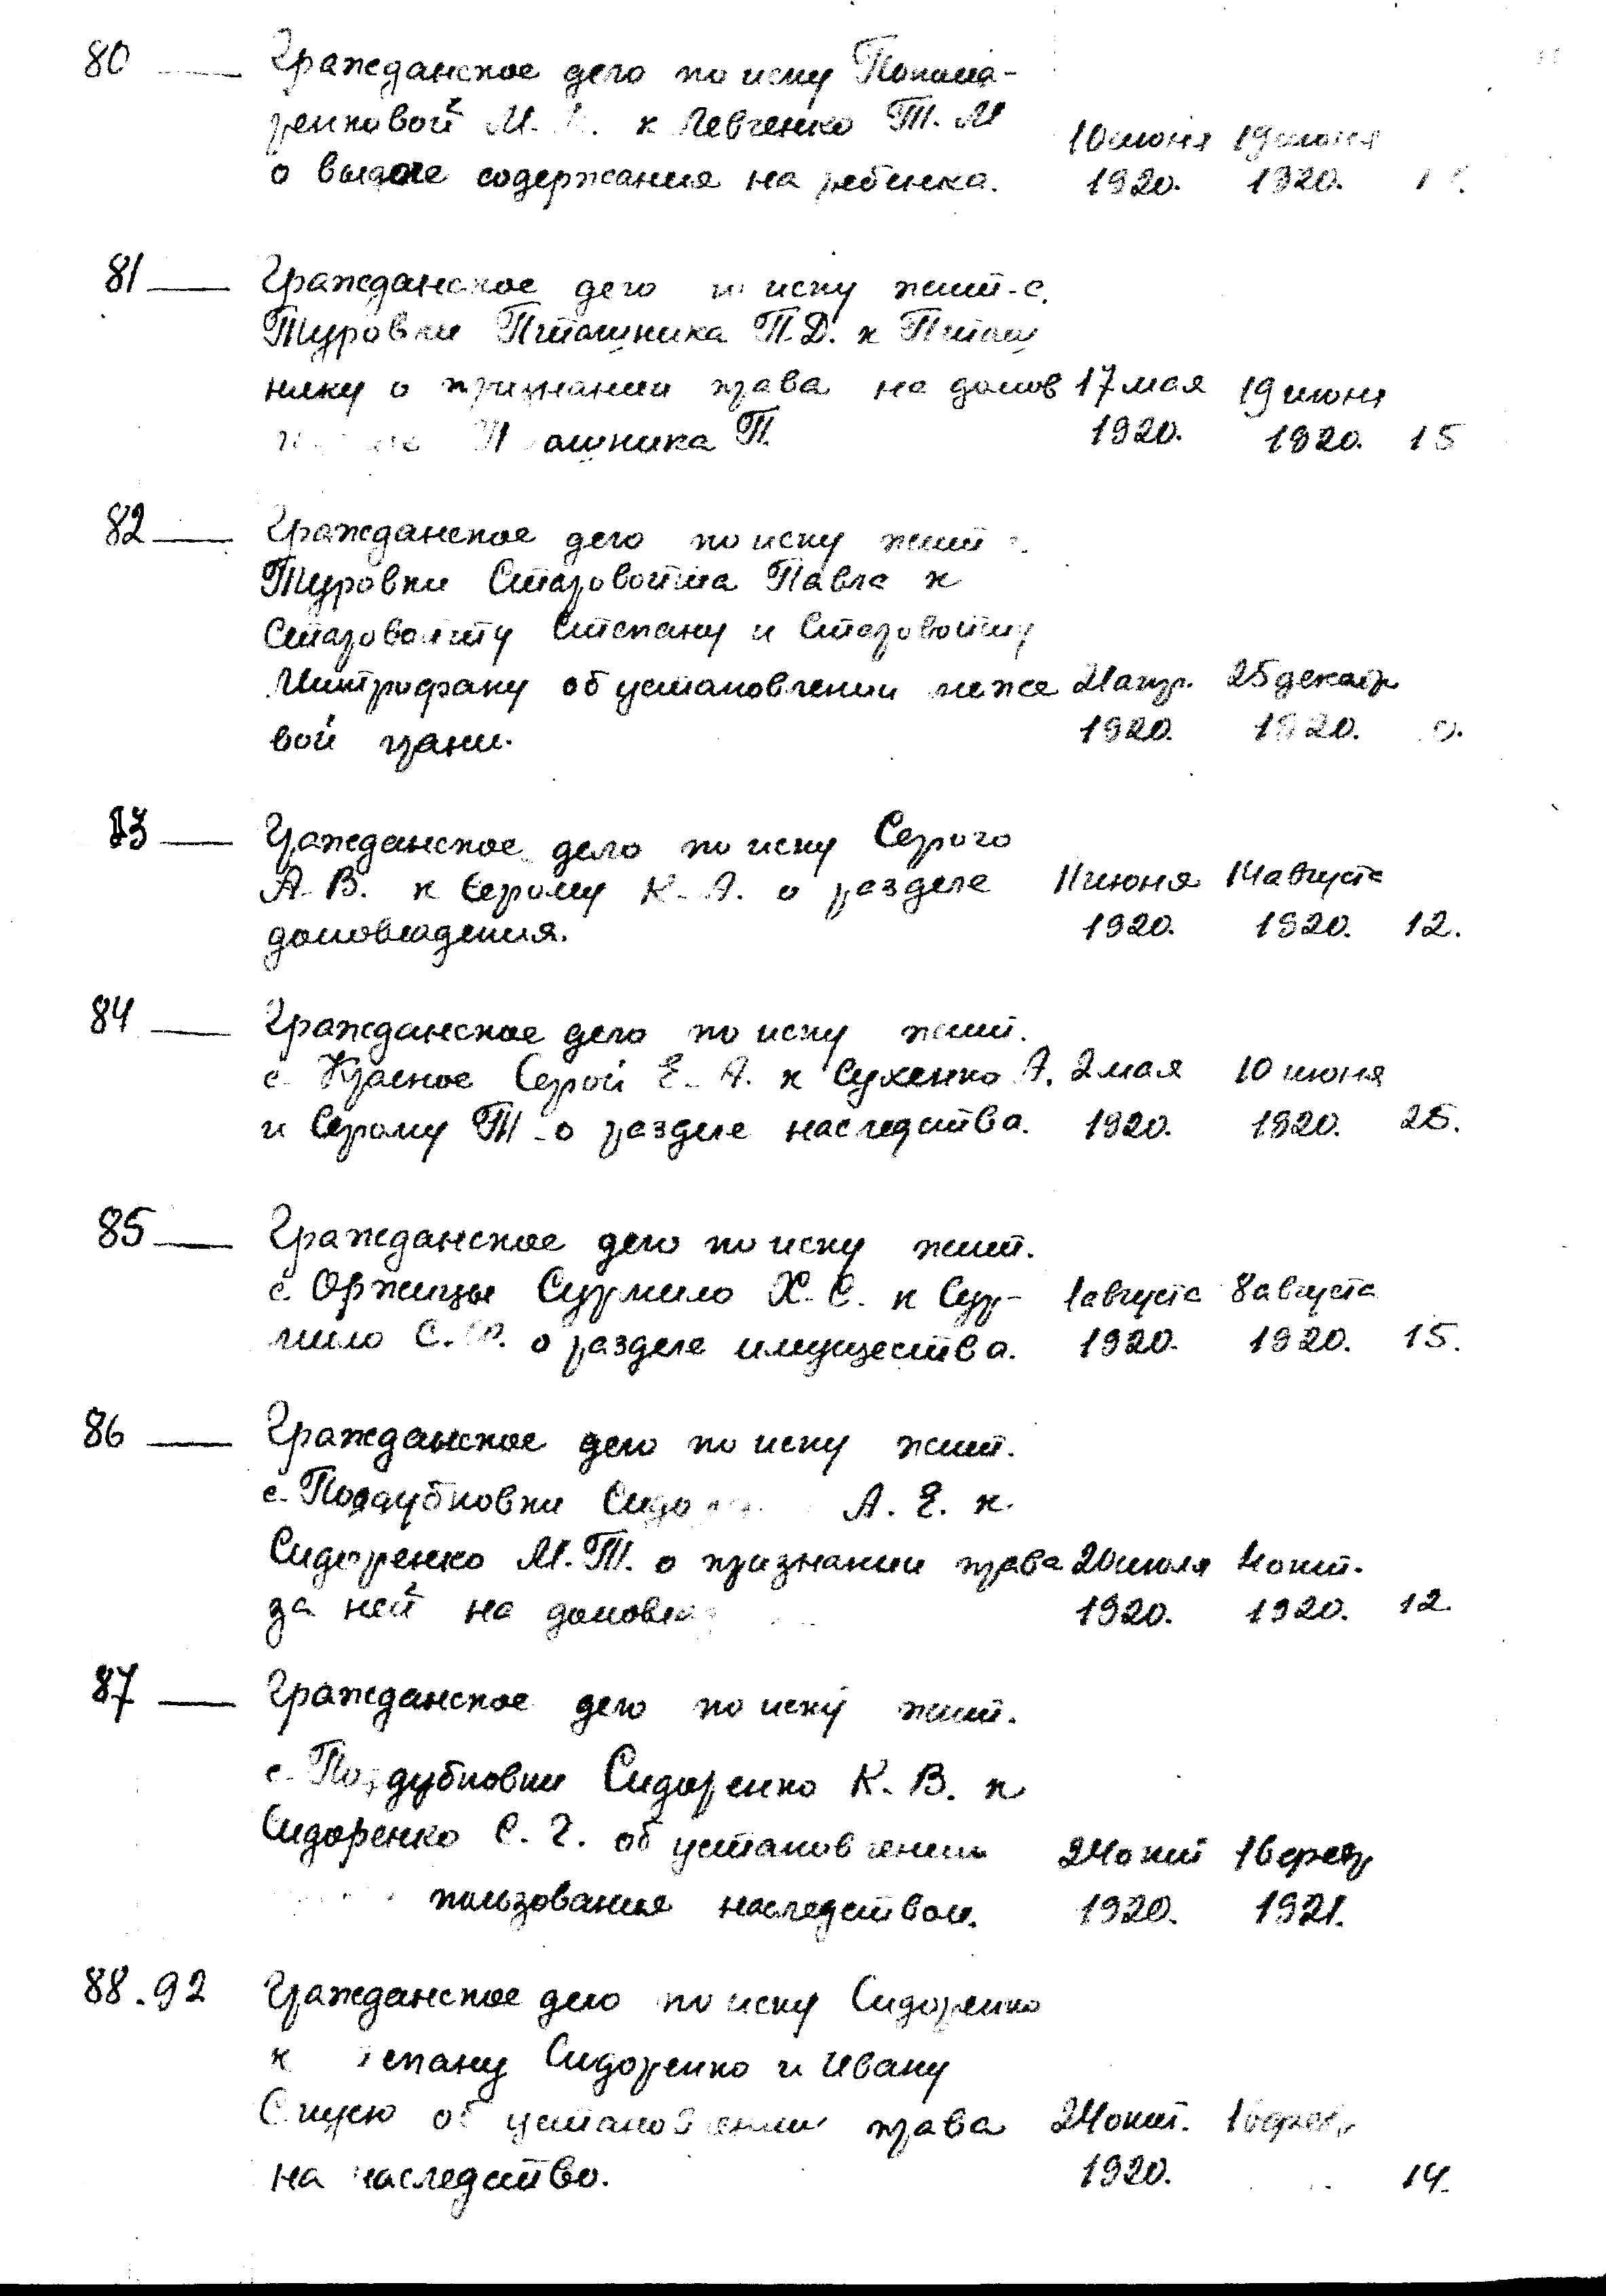 80 — Гражданское дело по иску Понома-
ренковой М. к Левченко Т. М
о выдаче содержания на ребенка. 10 июня 1920. 19 июня 1920.
81 — Гражданское дело по иску жит. с.
Туровки Пташника П.Д. к Пташ
нику о признании права на домов 17 мая 19 июня
Пташника П. 1920. 1920. 15
82 — Гражданское дело по иску жит
Туровки Старовойта Павла к
Старовойту Степану и Старовойту
Митрофану об установлении меже 21 апр. 25 декабр
вой грани. 1920. 1920.
83 — Гражданское дело по иску Серого
А. В. к Серому К. А. о разделе 11 июня 14 августа
домовладения. 1920. 1920. 12.
84 — Гражданское дело по иску жит.
с. Красное Серой Е. А. к Сухенко А. 2 мая 10 июня
и Серому Т. о разделе наследства. 1920. 1920. 25.
85 — Гражданское дело по иску жит.
с. Оржицы Сурмило Х. С. к Сур- 1 августа 8 августа
мило С. Ф. о разделе имущества. 1920. 1920. 15.
86 — Гражданское дело по иску жит.
с. Поддубновки А. Е. к
Сидоренко М. Т. о признании права 20 июля 4 окт.
за ней на 1920. 1920. 12
87 — Гражданское дело по иску жит.
с. Поддубновки Сидоренко К. В. к
Сидоренко С. Г. об установлении 24 окт 16 февр
пользования наследством. 1920. 1921.
88.92 Гражданское дело по иску Сидоренко
к Степану Сидоренко и Ивану
об установлении права 24 окт. 16 февр
на наследство. 1920. 14.